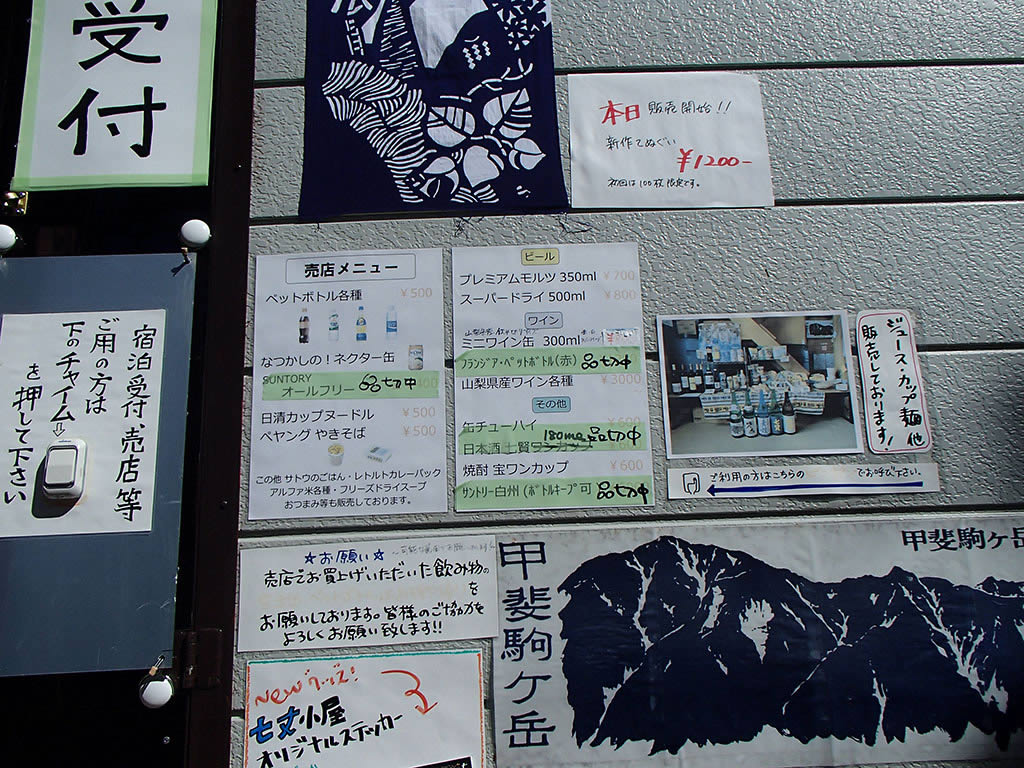 受付
本日 販売開始!!
新作てぬぐい
¥1200-
初回は100枚限定です。
宿泊受付、売店等
ご用の方は
下のチャイム⇩
を押して下さい
売店メニュー
ペットボトル各種 ¥500
なつかしの!ネクター缶
SUNTORY
オールフリー 品切中
日清カップヌードル ¥500
ペヤング やきそば ¥500
この他 サトウのごはん・レトルトカレーパック
アルファ米各種・フリーズドライスープ
おつまみ等も販売しております。
ビール
プレミアムモルツ 350ml ¥700
スーパードライ 500ml ¥800
ワイン
ミニワイン缶 300ml
フランジア・ペットボトル(赤) 品切中
山梨県産ワイン各種 ¥3000
その他
缶チューハイ ¥600
日本酒 上賢ワンカップ 品切中
焼酎 宝ワンカップ ¥600
サントリー白州(ボトルキープ可 品切中
ジュース・カップ麺 他
販売しております!
ご利用の方はこちらの でお呼び下さい。
☆お願い☆
売店でお買上げいただいた飲み物の
を
お願いしております。皆様のご協力を
よろしくお願い致します!!
Newグッズ!
七丈小屋
オリジナルステッカー
甲斐駒ヶ岳
甲斐駒ヶ岳